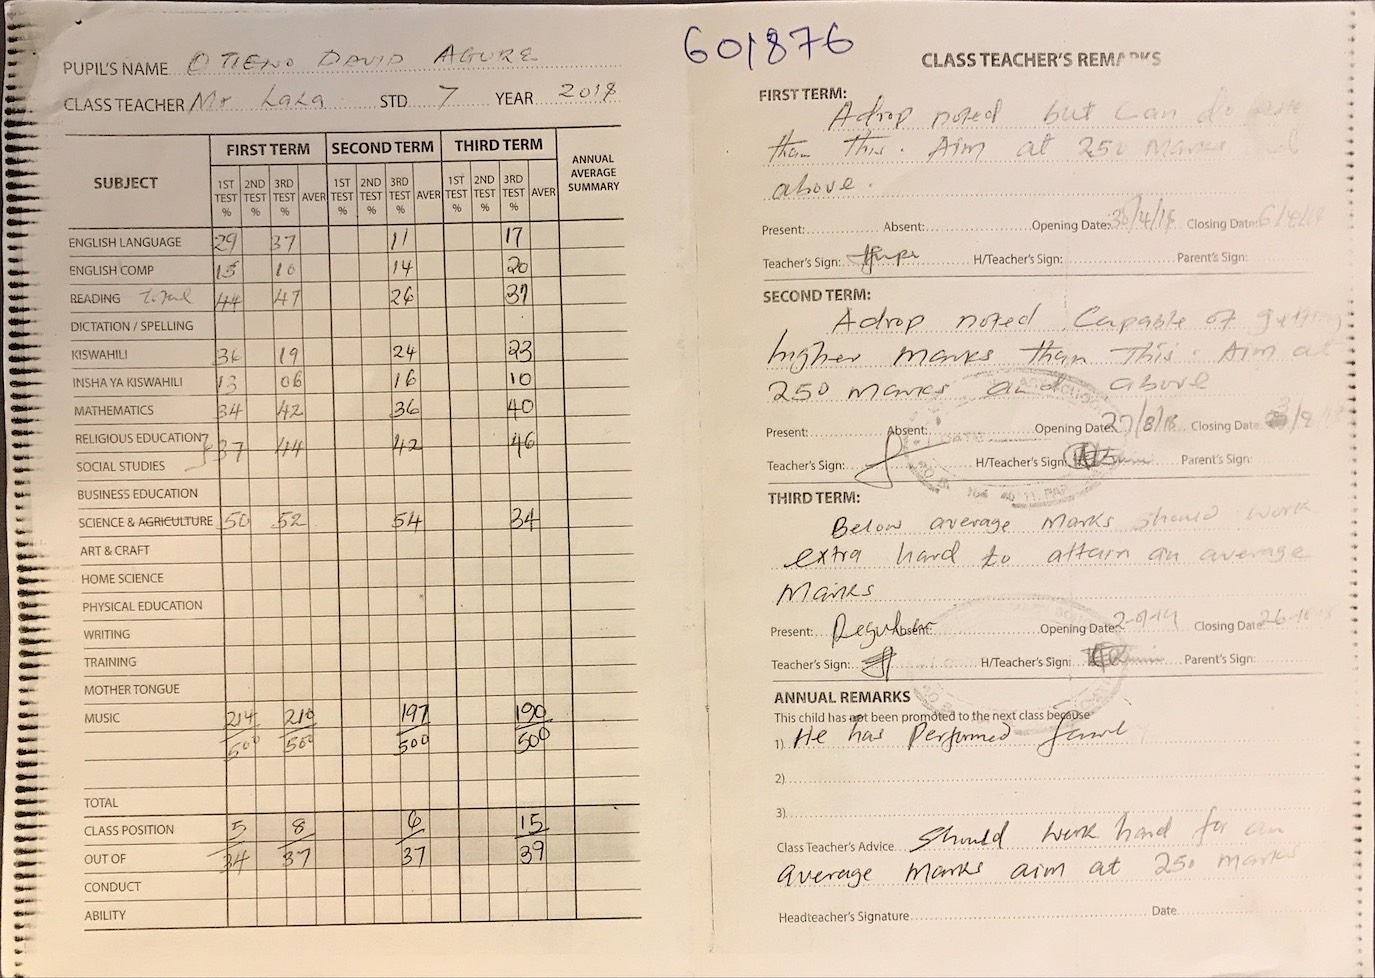 601876
PUPIL'S NAME OTIENO DAVID AGURE
CLASS TEACHER Mr LaLa STD 7 YEAR 2018
SUBJECT FIRST TERM SECOND TERM THIRD TERM ANNUAL AVERAGE SUMMARY
1ST TEST % 2ND TEST % 3RD TEST % AVER 1ST TEST % 2ND TEST % 3RD TEST % AVER 1ST TEST % 2ND TEST % 3RD TEST % AVER
ENGLISH LANGUAGE 29 37 11 17
ENGLISH COMP 15 10 14 20
READING Total 44 47 26 37
DICTATION / SPELLING
KISWAHILI 36 19 24 23
INSHA YA KISWAHILI 13 06 16 10
MATHEMATICS 34 42 36 40
RELIGIOUS EDUCATION 37 44 42 46
SOCIAL STUDIES
BUSINESS EDUCATION
SCIENCE & AGRICULTURE 50 52 54 34
ART & CRAFT
HOME SCIENCE
PHYSICAL EDUCATION
WRITING
TRAINING
MOTHER TONGUE
MUSIC 214 210 197 190
500 500 500 500
TOTAL
CLASS POSITION 5 8 6 15
OUT OF 34 37 37 39
CONDUCT
ABILITY
CLASS TEACHER'S REMARKS
FIRST TERM:
A drop noted but can do
than this. Aim at 250 marks and
above.
Present: Absent: Opening Date: 30/4/18 Closing Date:
Teacher's Sign: H/Teacher's Sign: Parent's Sign:
SECOND TERM:
A drop noted. Capable of getting
higher marks than this. Aim at
250 marks and above
Present: Absent: Opening Date: 27/8/18 Closing Date
Teacher's Sign: H/Teacher's Sign: Parent's Sign:
THIRD TERM:
Below average marks should work
extra hard to attain an average
marks
Present: Regular Absent: Opening Date: Closing Date 26-10-18
Teacher's Sign: H/Teacher's Sign: Parent's Sign:
ANNUAL REMARKS
This child has not been promoted to the next class because
1) He has performed
2)
3)
Class Teacher's Advice Should work hard for an
average marks aim at 250 marks
Headteacher's Signature Date